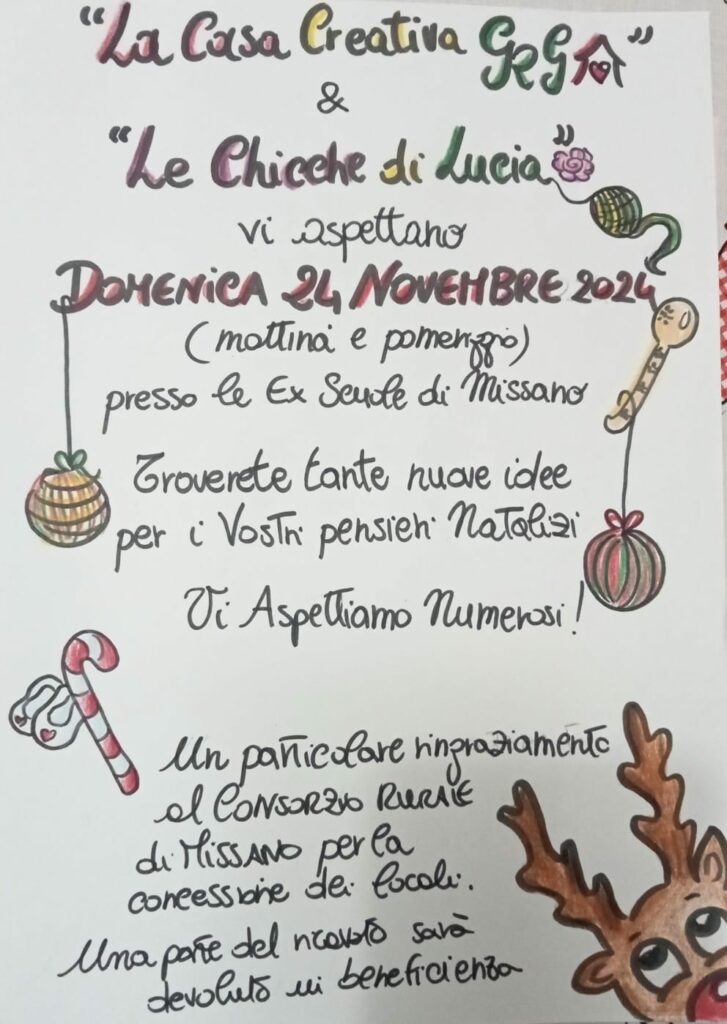 "La Casa Creativa GRG"
&
"Le Chicche di Lucia"
vi aspettano
DOMENICA 24 NOVEMBRE 2024
(mattina e pomeriggio)
presso le Ex Scuole di Missano
Troverete tante nuove idee
per i Vostri pensieri Natalizi
Vi Aspettiamo Numerosi!
Un particolare ringraziamento
al CONSORZIO RURALE
di MISSANO per la
concessione dei locali.
Una parte del ricavato sarà
devoluto in beneficienza